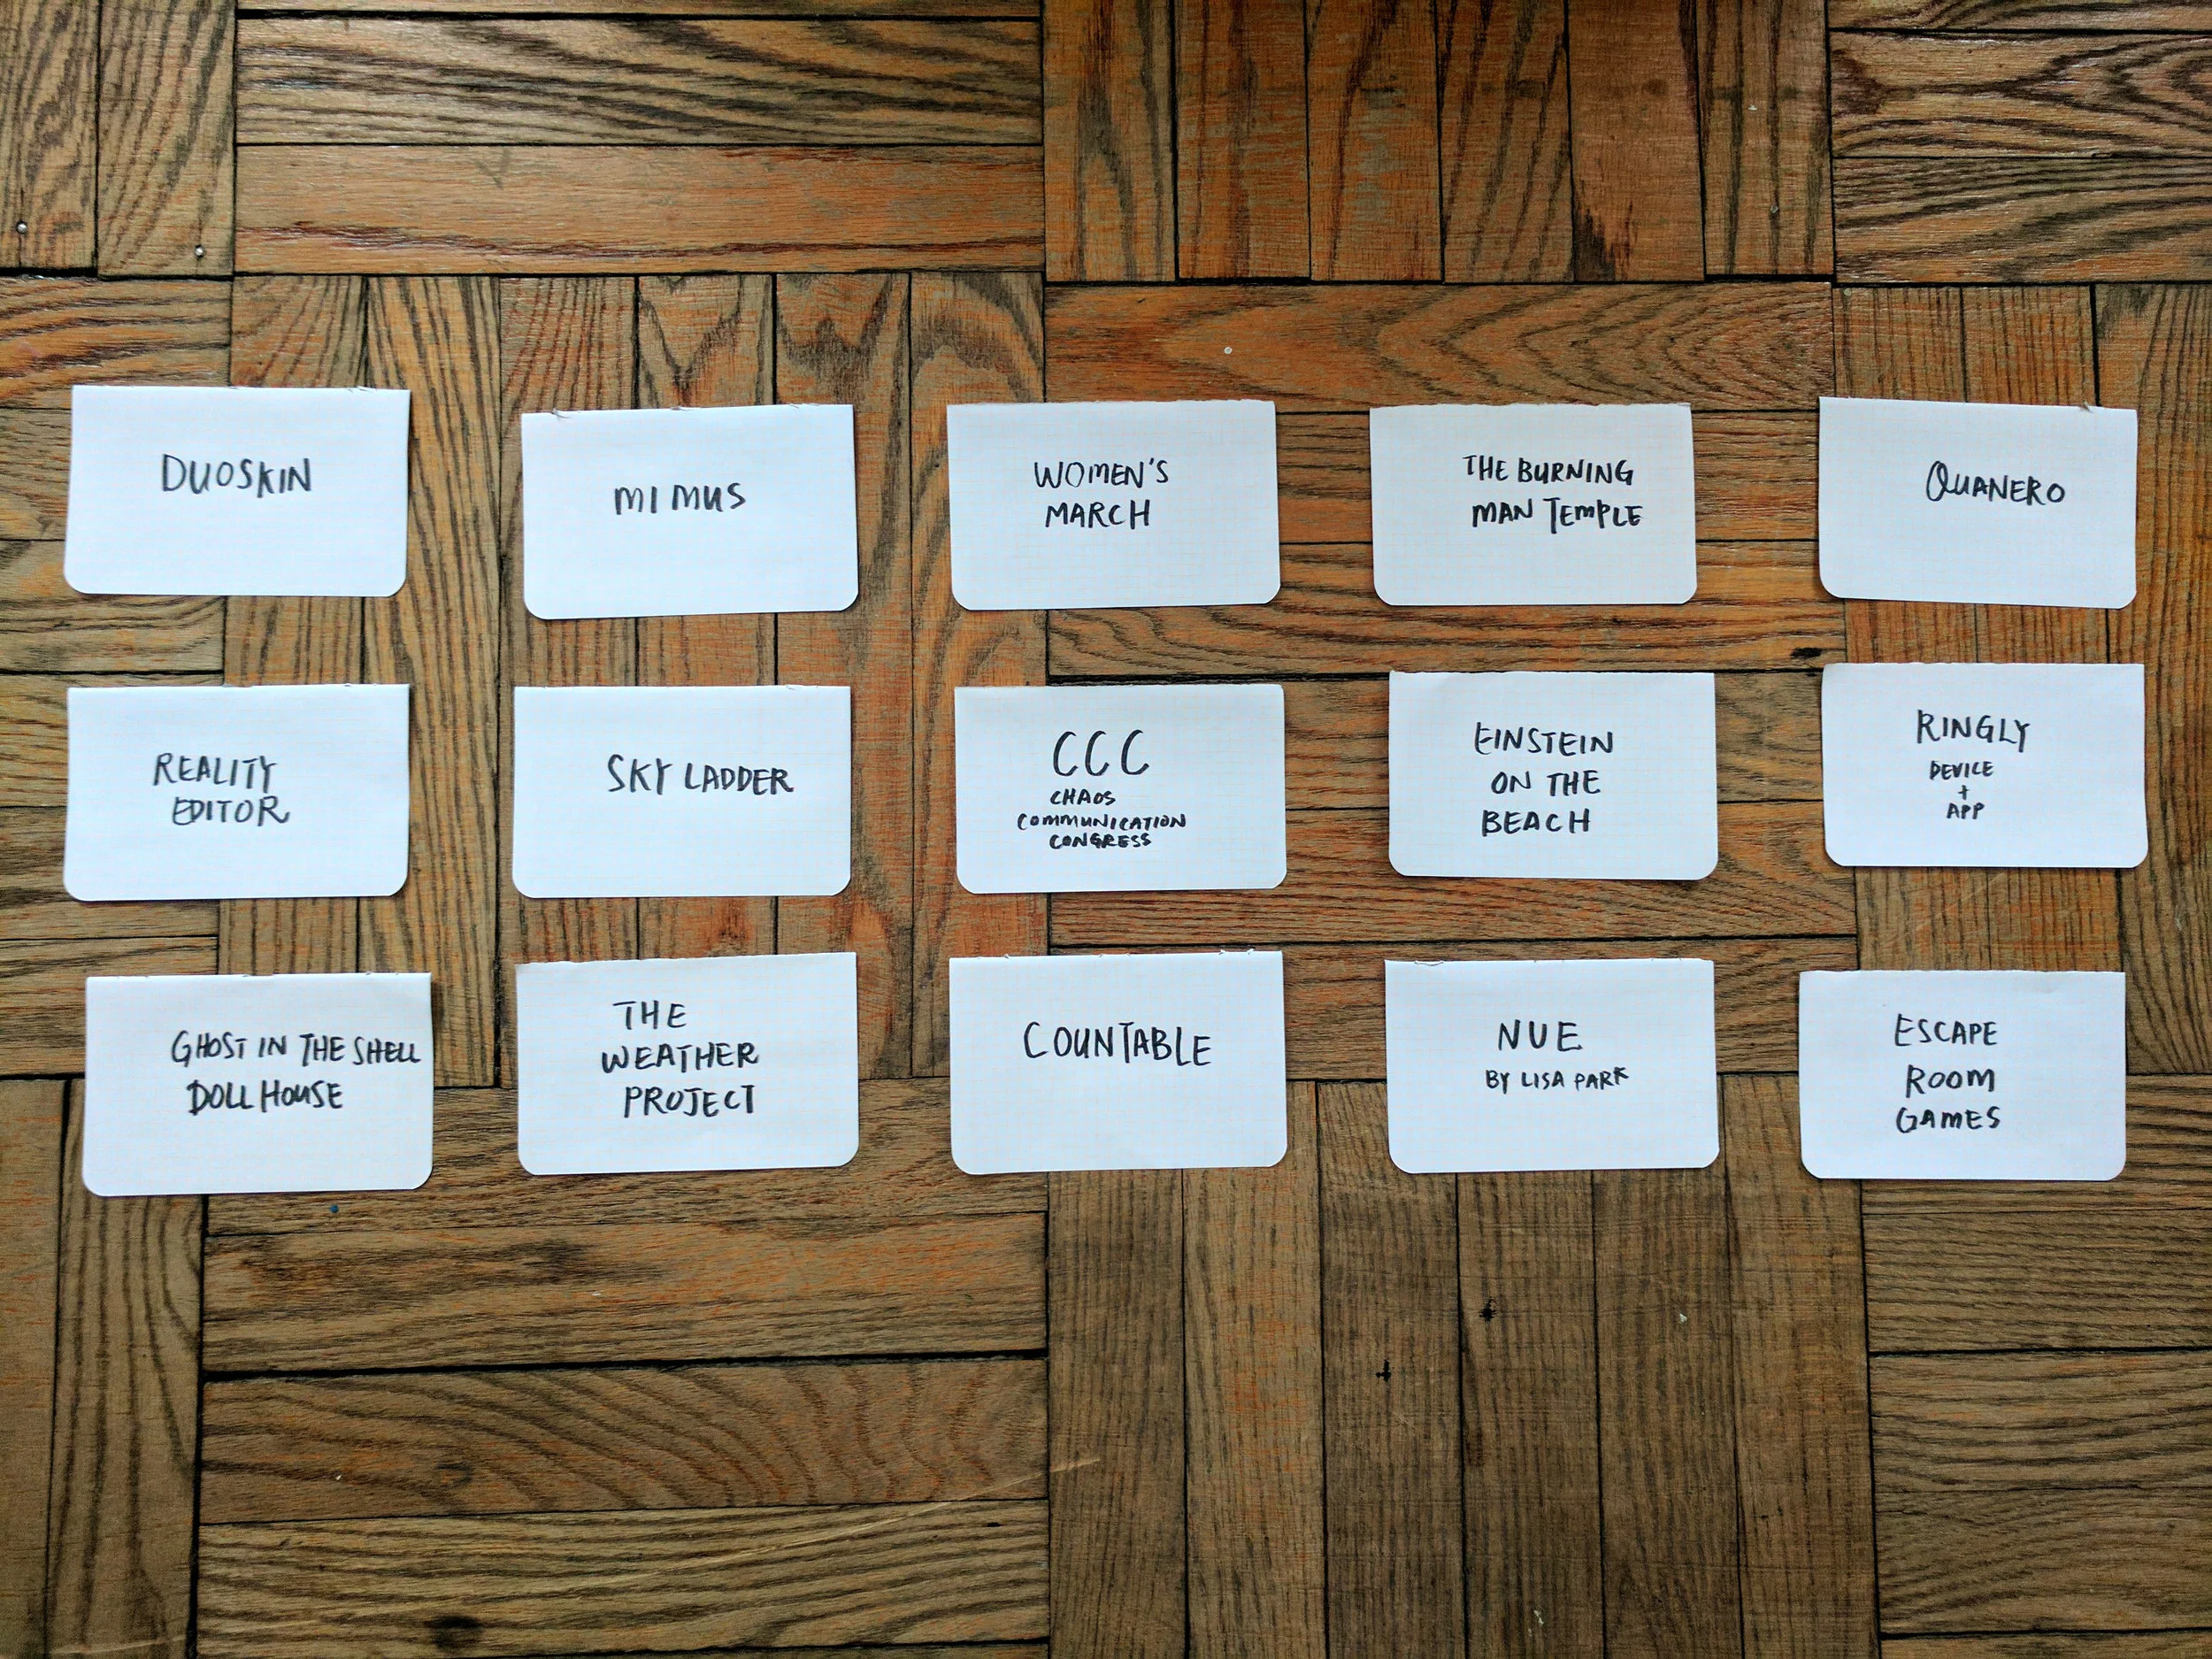 DUOSKIN
MIMUS
WOMEN'S
MARCH
THE BURNING
MAN TEMPLE
QUANERO
REALITY
EDITOR
SKY LADDER
CCC
CHAOS
COMMUNICATION
CONGRESS
EINSTEIN
ON THE
BEACH
RINGLY
DEVICE
+
APP
GHOST IN THE SHELL
DOLL HOUSE
THE
WEATHER
PROJECT
COUNTABLE
NUE
BY LISA PARK
ESCAPE
ROOM
GAMES